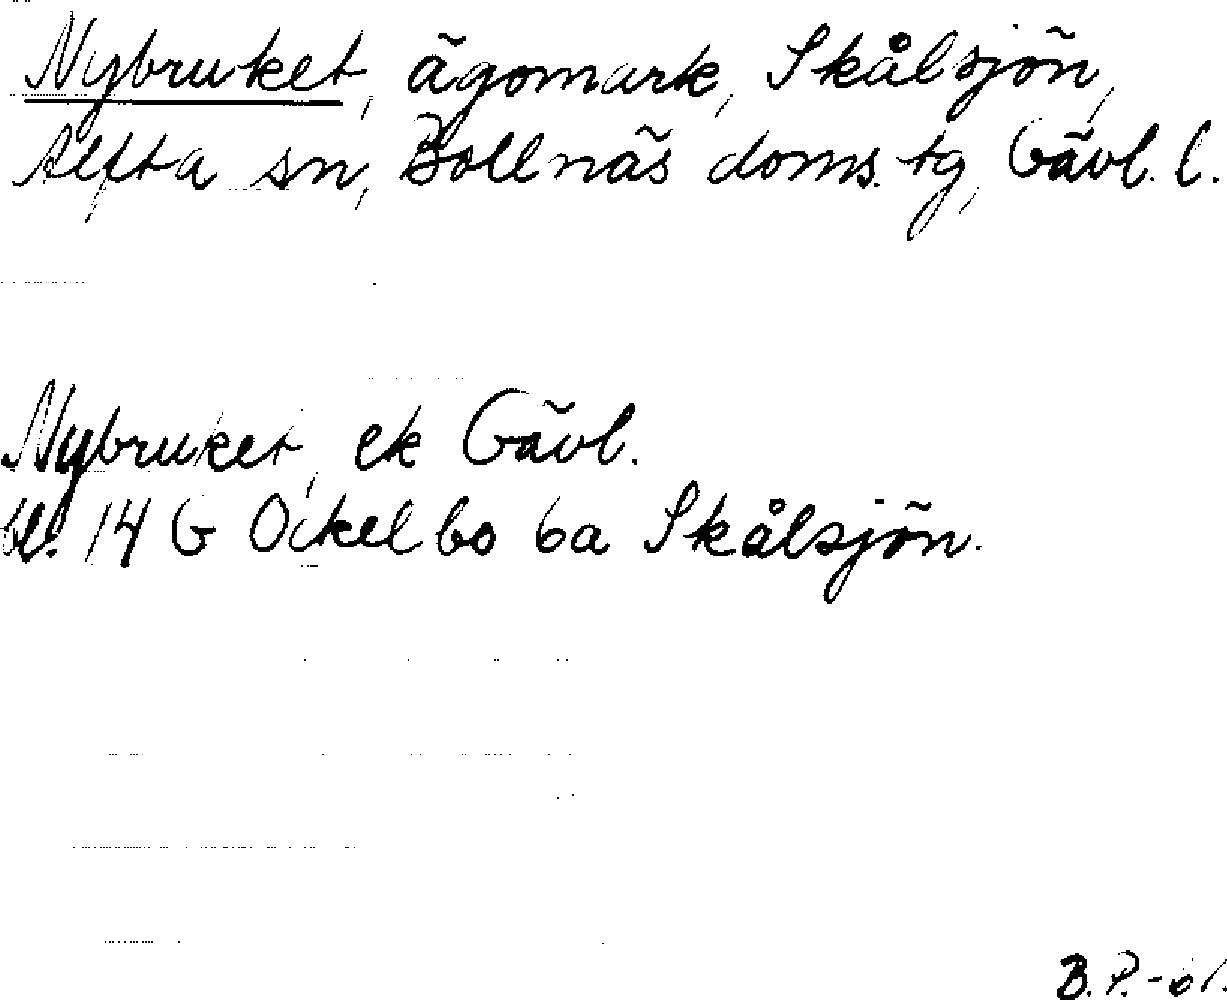 Nybruket, ägomark, Skålsjön,
Alfta sn, Bollnäs doms. tg, Gävl. l.
Nybruket, ek Gävl.
bl. 14 G Ockelbo 6a Skålsjön.
B.P.-61.